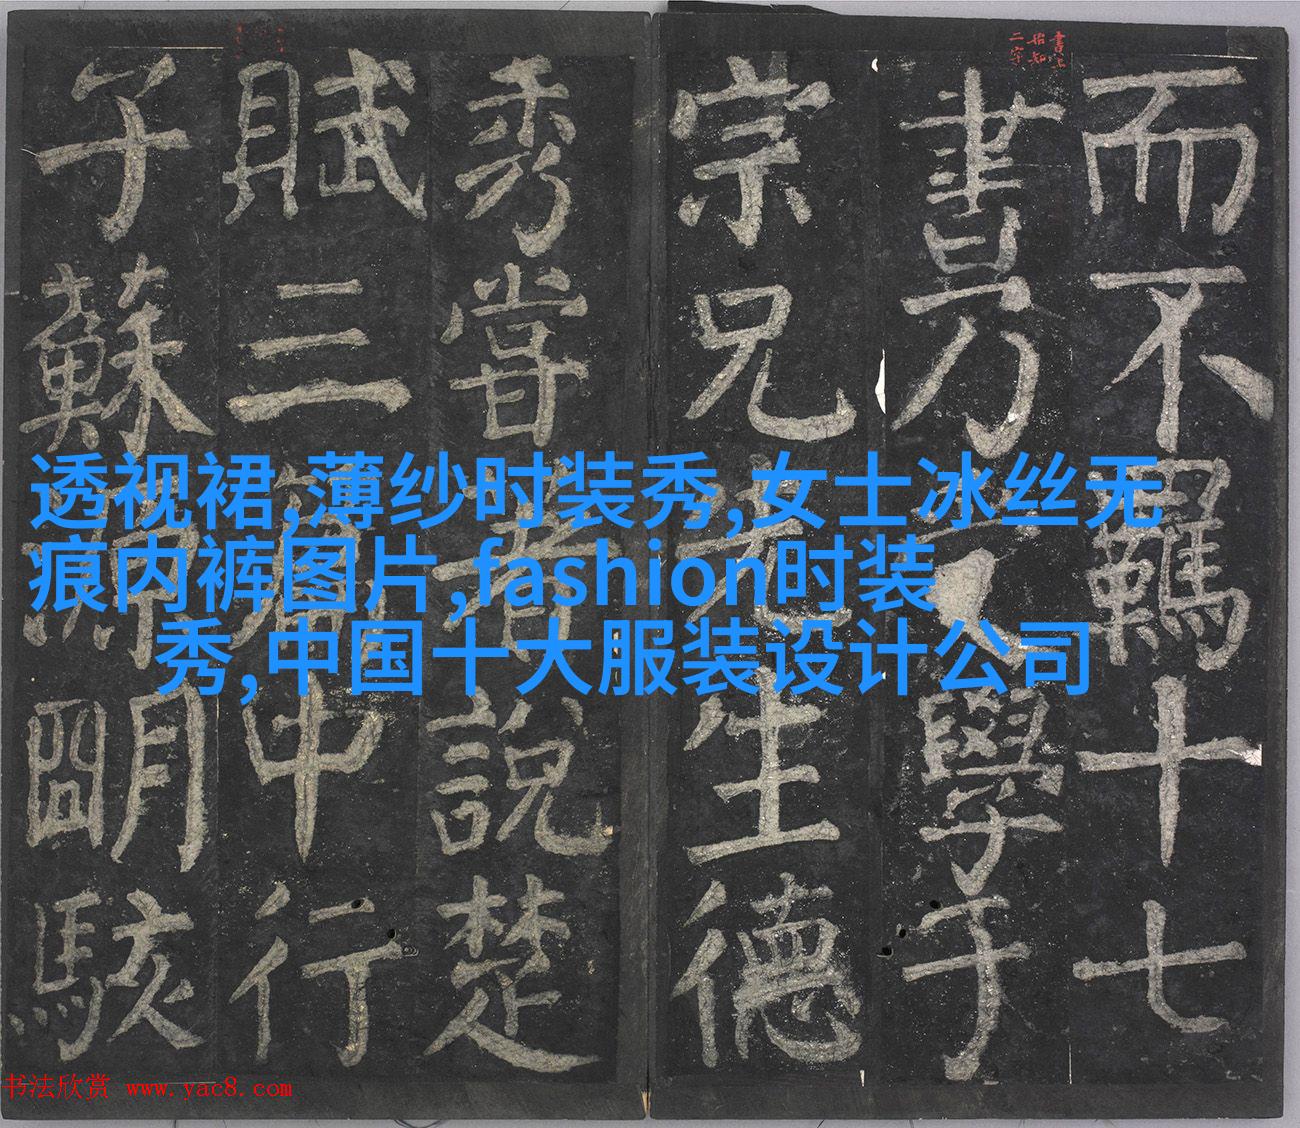 而不羈十七
書乃學于
宗兄先生德
秀嘗著說楚
賦三篇中行
子蘇聞朙駭
透视裙,薄纱时装秀,女士冰丝无
痕内裤图片,fashion时装
秀,中国十大服装设计公司
书法欣赏 www.yac8.com